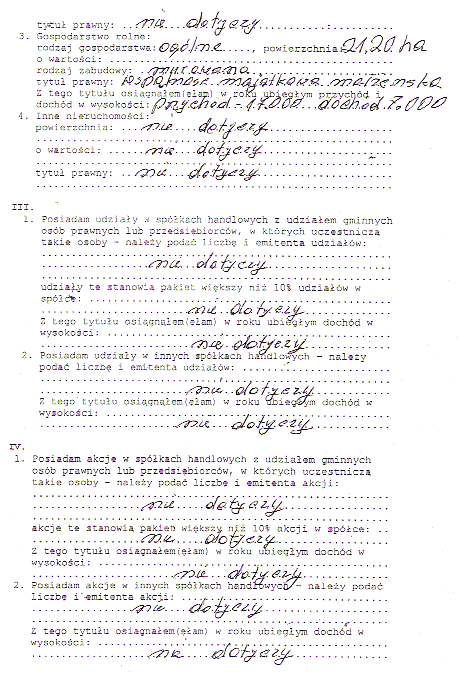 tytuł prawny: ... nie dotyczy
3. Gospodarstwo rolne:
rodzaj gospodarstwa: ogólne ....., powierzchnia: 21,20 ha
o wartości:
rodzaj zabudowy: murowana
tytuł prawny: wspólność majątkowa małżeńska
Z tego tytułu osiągnąłem(ęłam) w roku ubiegłym przychód i
dochód w wysokości: przychód - 17.000 dochód 7.000
4. Inne nieruchomości:
powierzchnia: nie dotyczy
o wartości: nie dotyczy
tytuł prawny: nie dotyczy
III.
1. Posiadam udziały w spółkach handlowych z udziałem gminnych
osób prawnych lub przedsiębiorców, w których uczestniczą
takie osoby - należy podać liczbę i emitenta udziałów:
nie dotyczy
udziały te stanowią pakiet większy niż 10% udziałów w
spółce:
nie dotyczy
Z tego tytułu osiągnąłem(ęłam) w roku ubiegłym dochód w
wysokości:
nie dotyczy
2. Posiadam udziały w innych spółkach handlowych - należy
podać liczbę i emitenta udziałów:
nie dotyczy
Z tego tytułu osiągnąłem(ęłam) w roku ubiegłym dochód w
wysokości:
nie dotyczy
IV.
1. Posiadam akcje w spółkach handlowych z udziałem gminnych
osób prawnych lub przedsiębiorców, w których uczestniczą
takie osoby - należy podać liczbę i emitenta akcji:
nie dotyczy
akcje te stanowią pakiet większy niż 10% akcji w spółce:
nie dotyczy
Z tego tytułu osiągnąłem(ęłam) w roku ubiegłym dochód w
wysokości:
nie dotyczy
2. Posiadam akcje w innych spółkach handlowych - należy podać
liczbę i emitenta akcji:
nie dotyczy
Z tego tytułu osiągnąłem(ęłam) w roku ubiegłym dochód w
wysokości:
nie dotyczy